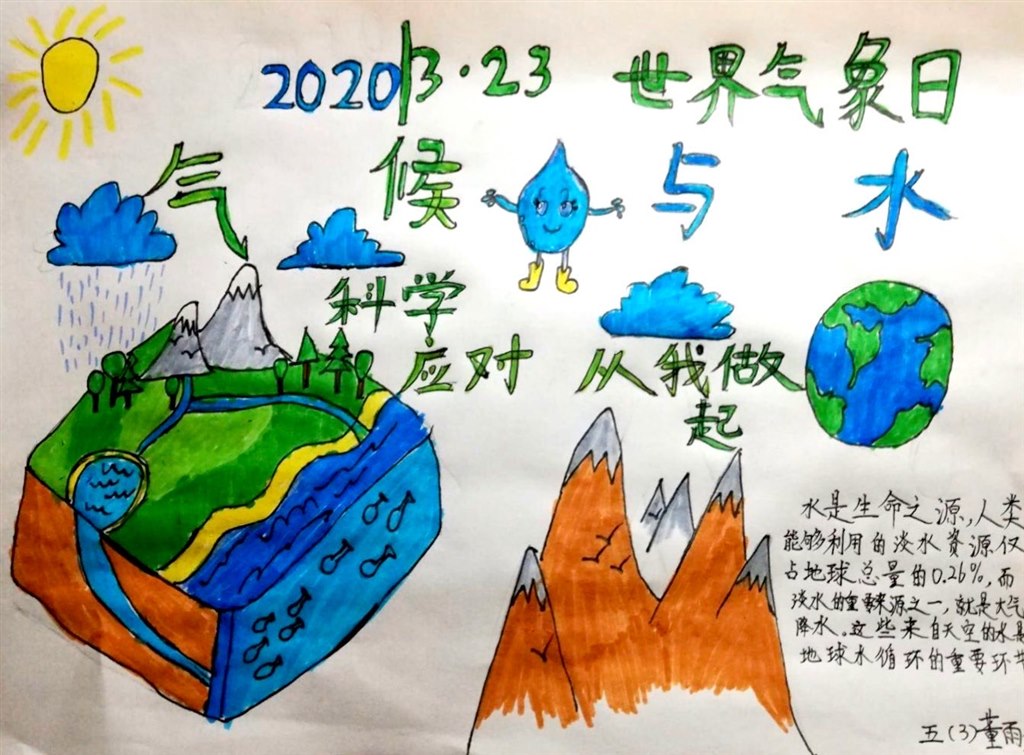 2020/3·23 世界气象日
气候与水
科学
应对 从我做
起
水是生命之源,人类
能够利用的淡水资源仅
占地球总量的0.26%,而
淡水的重要来源之一,就是大气
降水。这些来自天空的水是
地球水循环的重要环节
五(3)董雨